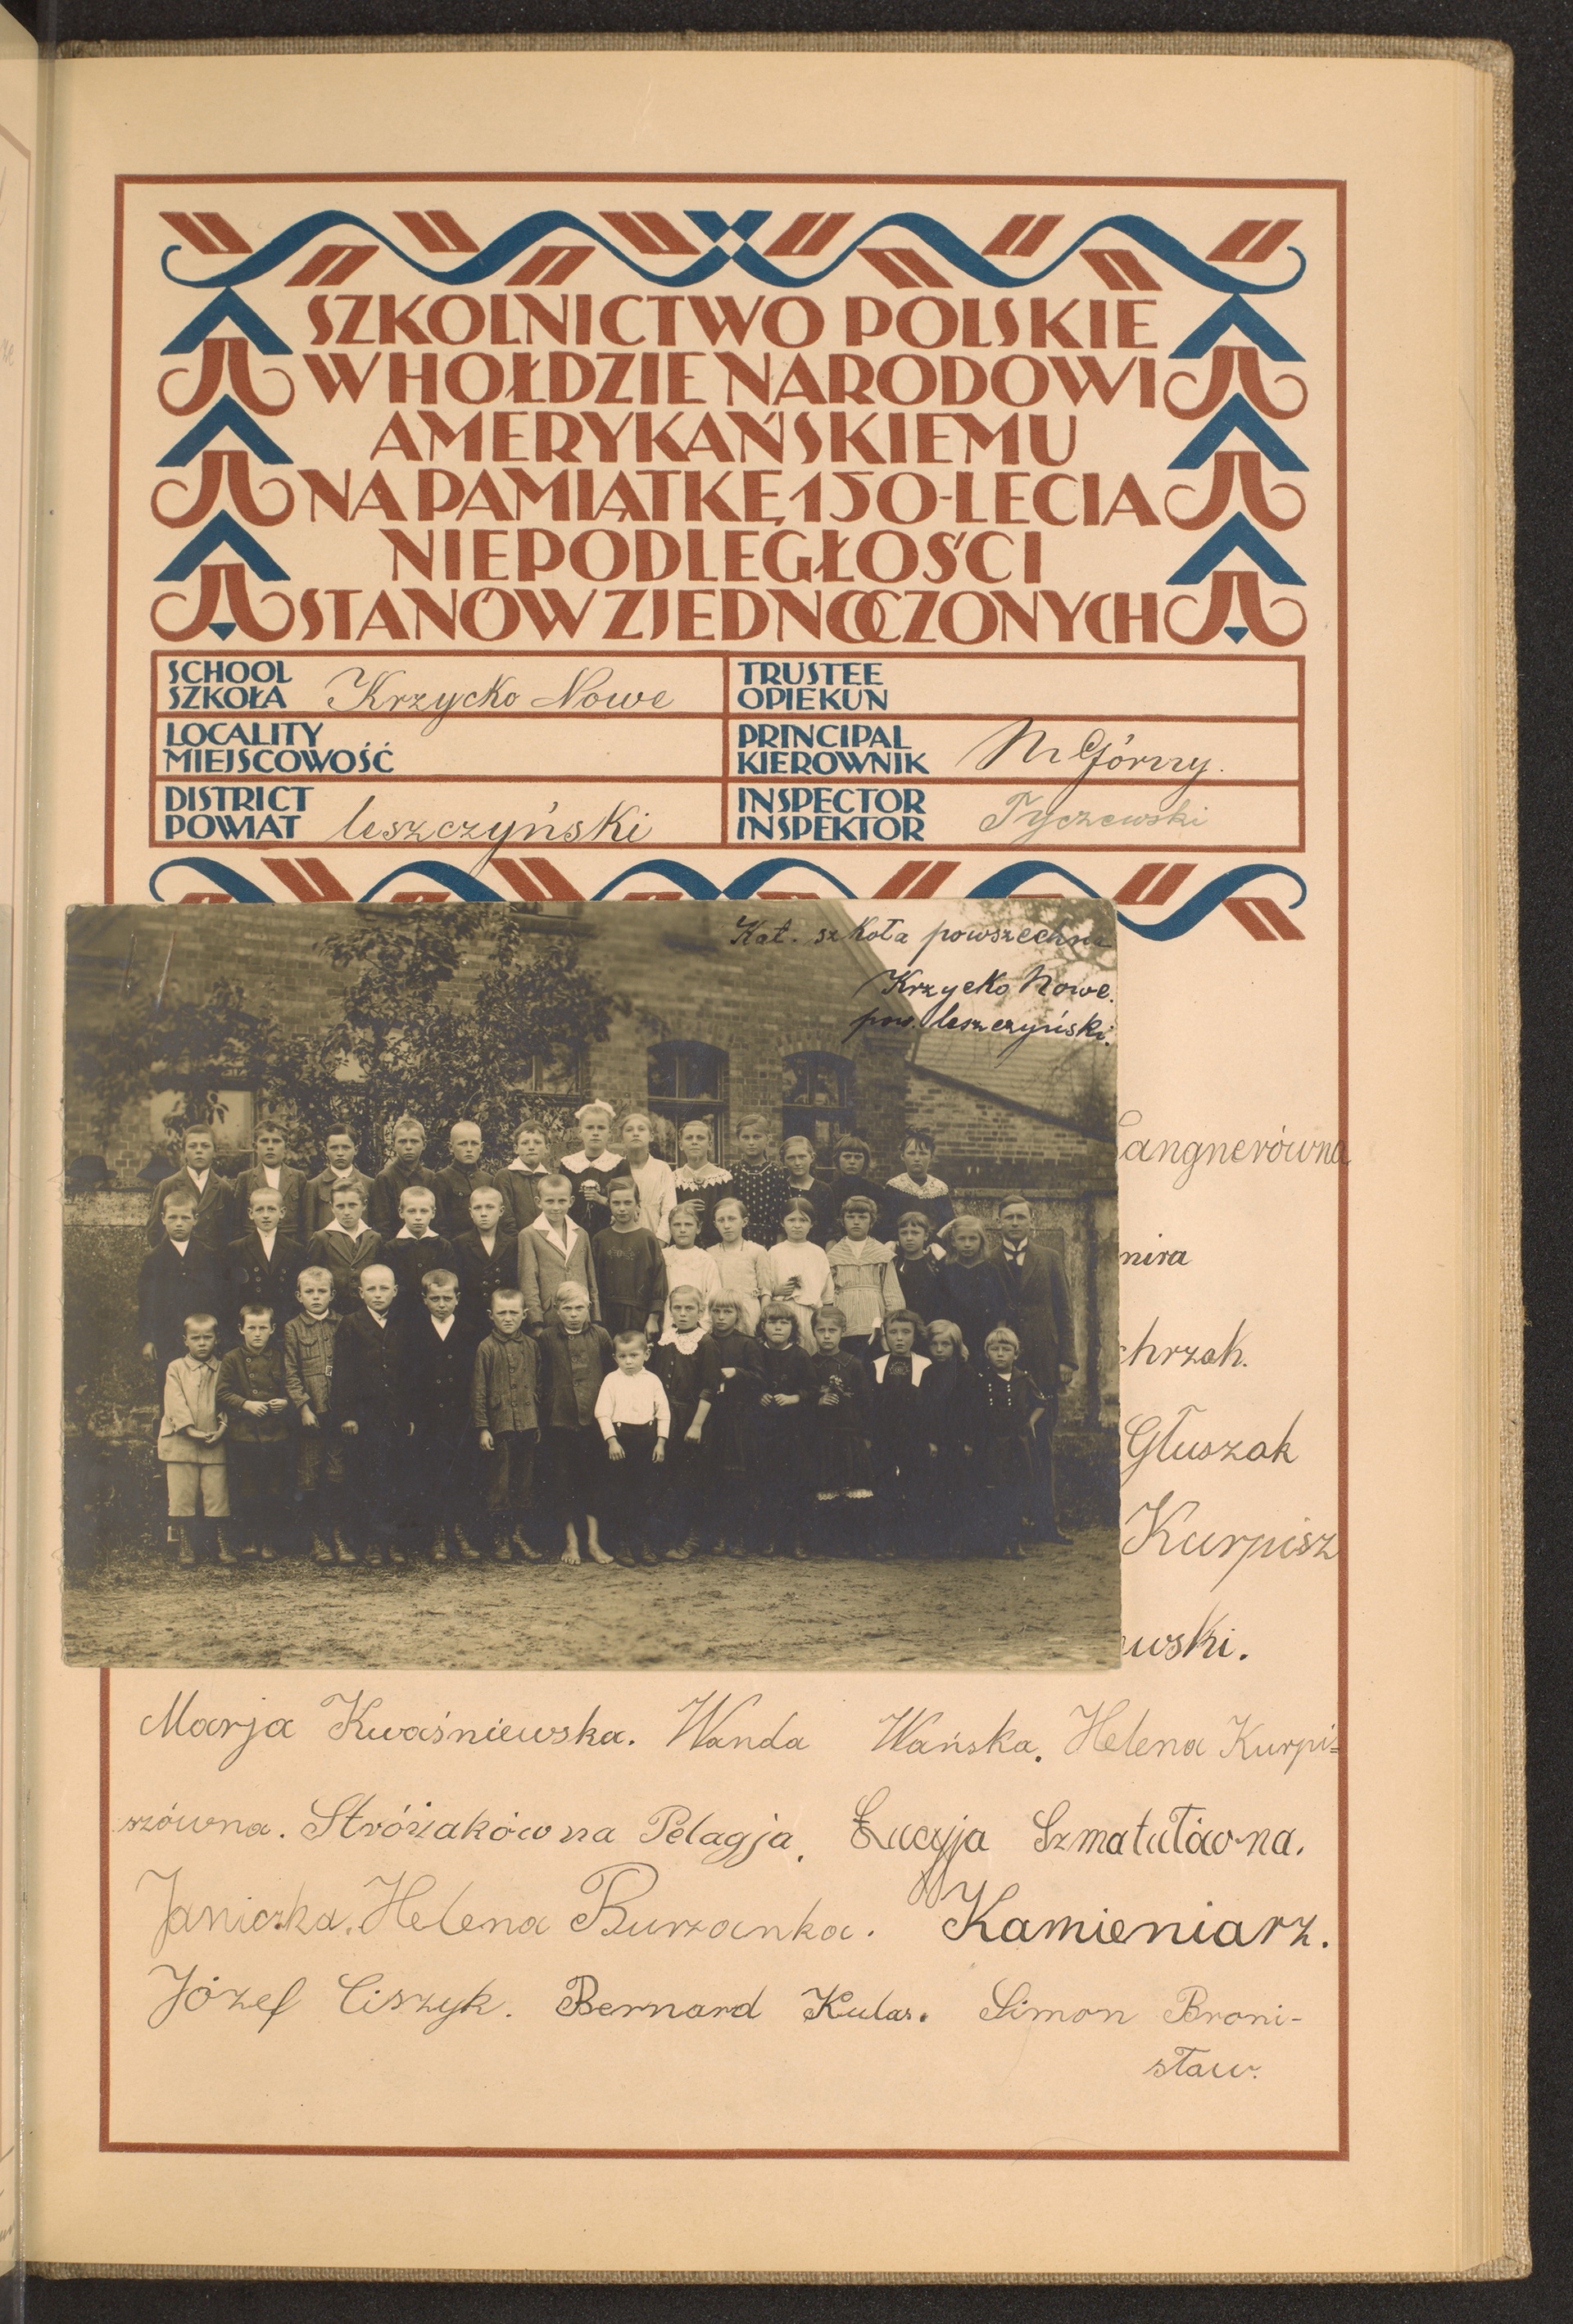 SZKOLNICTWO POLSKIE
W HOŁDZIE NARODOWI
AMERYKAŃSKIEMU
NA PAMIĄTKĘ 150-LECIA
NIEPODLEGŁOŚCI
STANÓW ZJEDNOCZONYCH
SCHOOL
SZKOŁA Krzycko Nowe
TRUSTEE
OPIEKUN
LOCALITY
MIEJSCOWOŚĆ
PRINCIPAL
KIEROWNIK Górny.
DISTRICT
POWIAT leszczyński
INSPECTOR
INSPEKTOR Tyczewski
Kat. szkoła powszechna
Krzycko Nowe.
pow. leszczyński.
angnerówna
mira
chrzak.
Głuszak
Kurpisz
wski.
Marja Kwaśniewska. Wanda Wańska. Helena Kurpi=
szówna. Stróżakówna Pelagja. Łucyja Szmatułówna.
Janiczka. Helena Burzanka. Kamieniarz.
Józef Ciszyk. Bernard Kulas. Simon Broni-
sław.